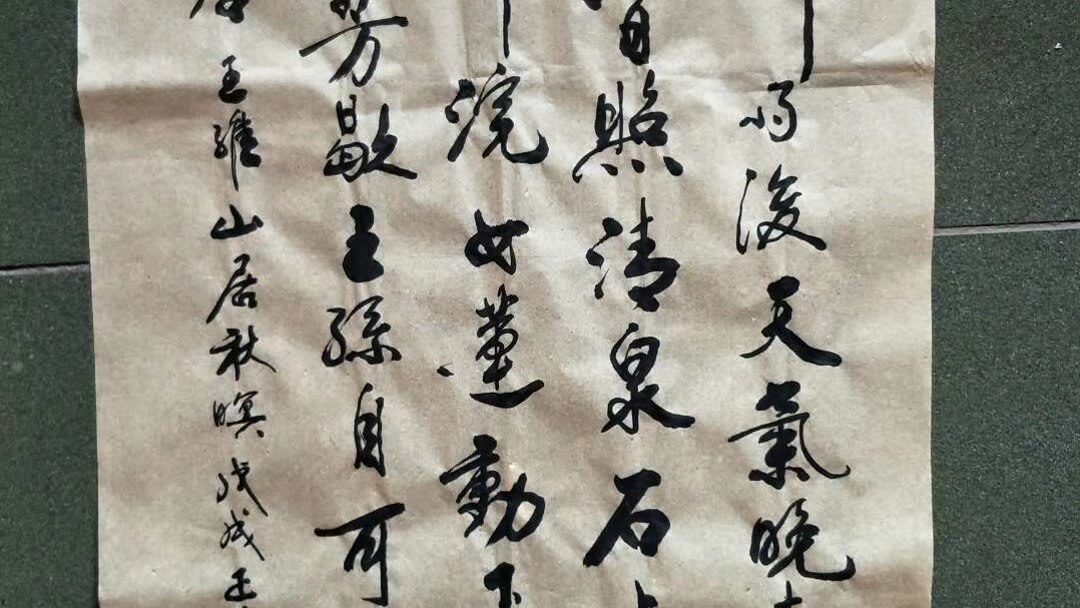 雨後天氣晚
照清泉石
浣女蓮動下
芳歇王孫自可
王維山居秋暝戊戌